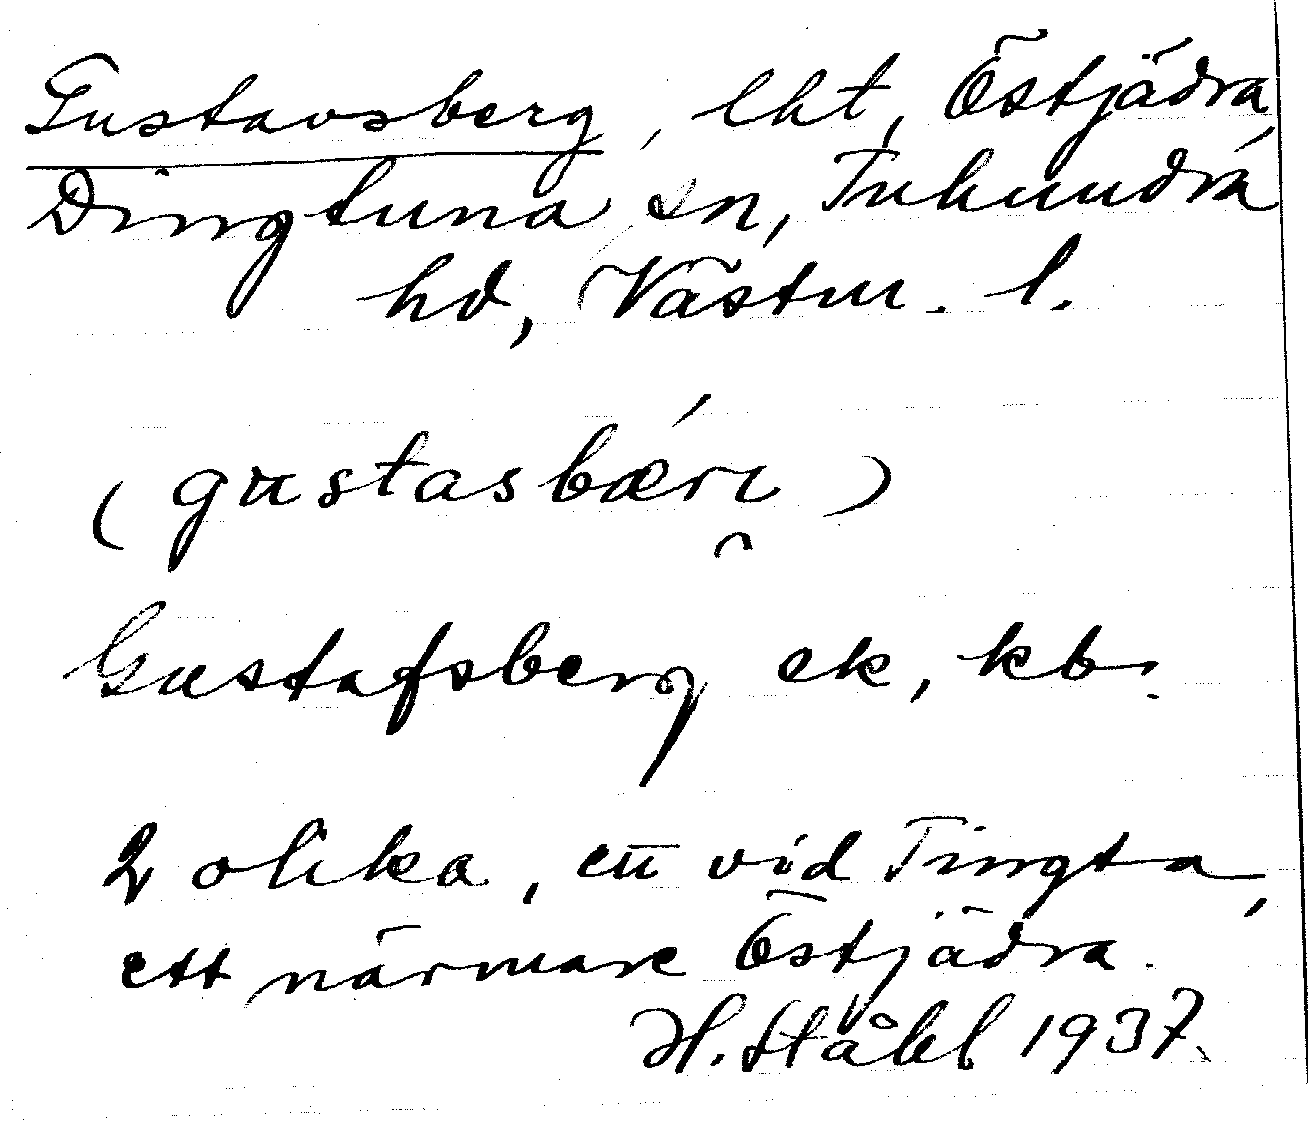 Gustavsberg, lht, Östjädra,
Dingtuna sn, Tuhundra
hd, Västm. l.
(gustasbæ´rı)
Gustafsberg ek, kb.
2 olika, ett vid Tingsta,
ett närmare Östjädra.
H. Ståhl 1937.